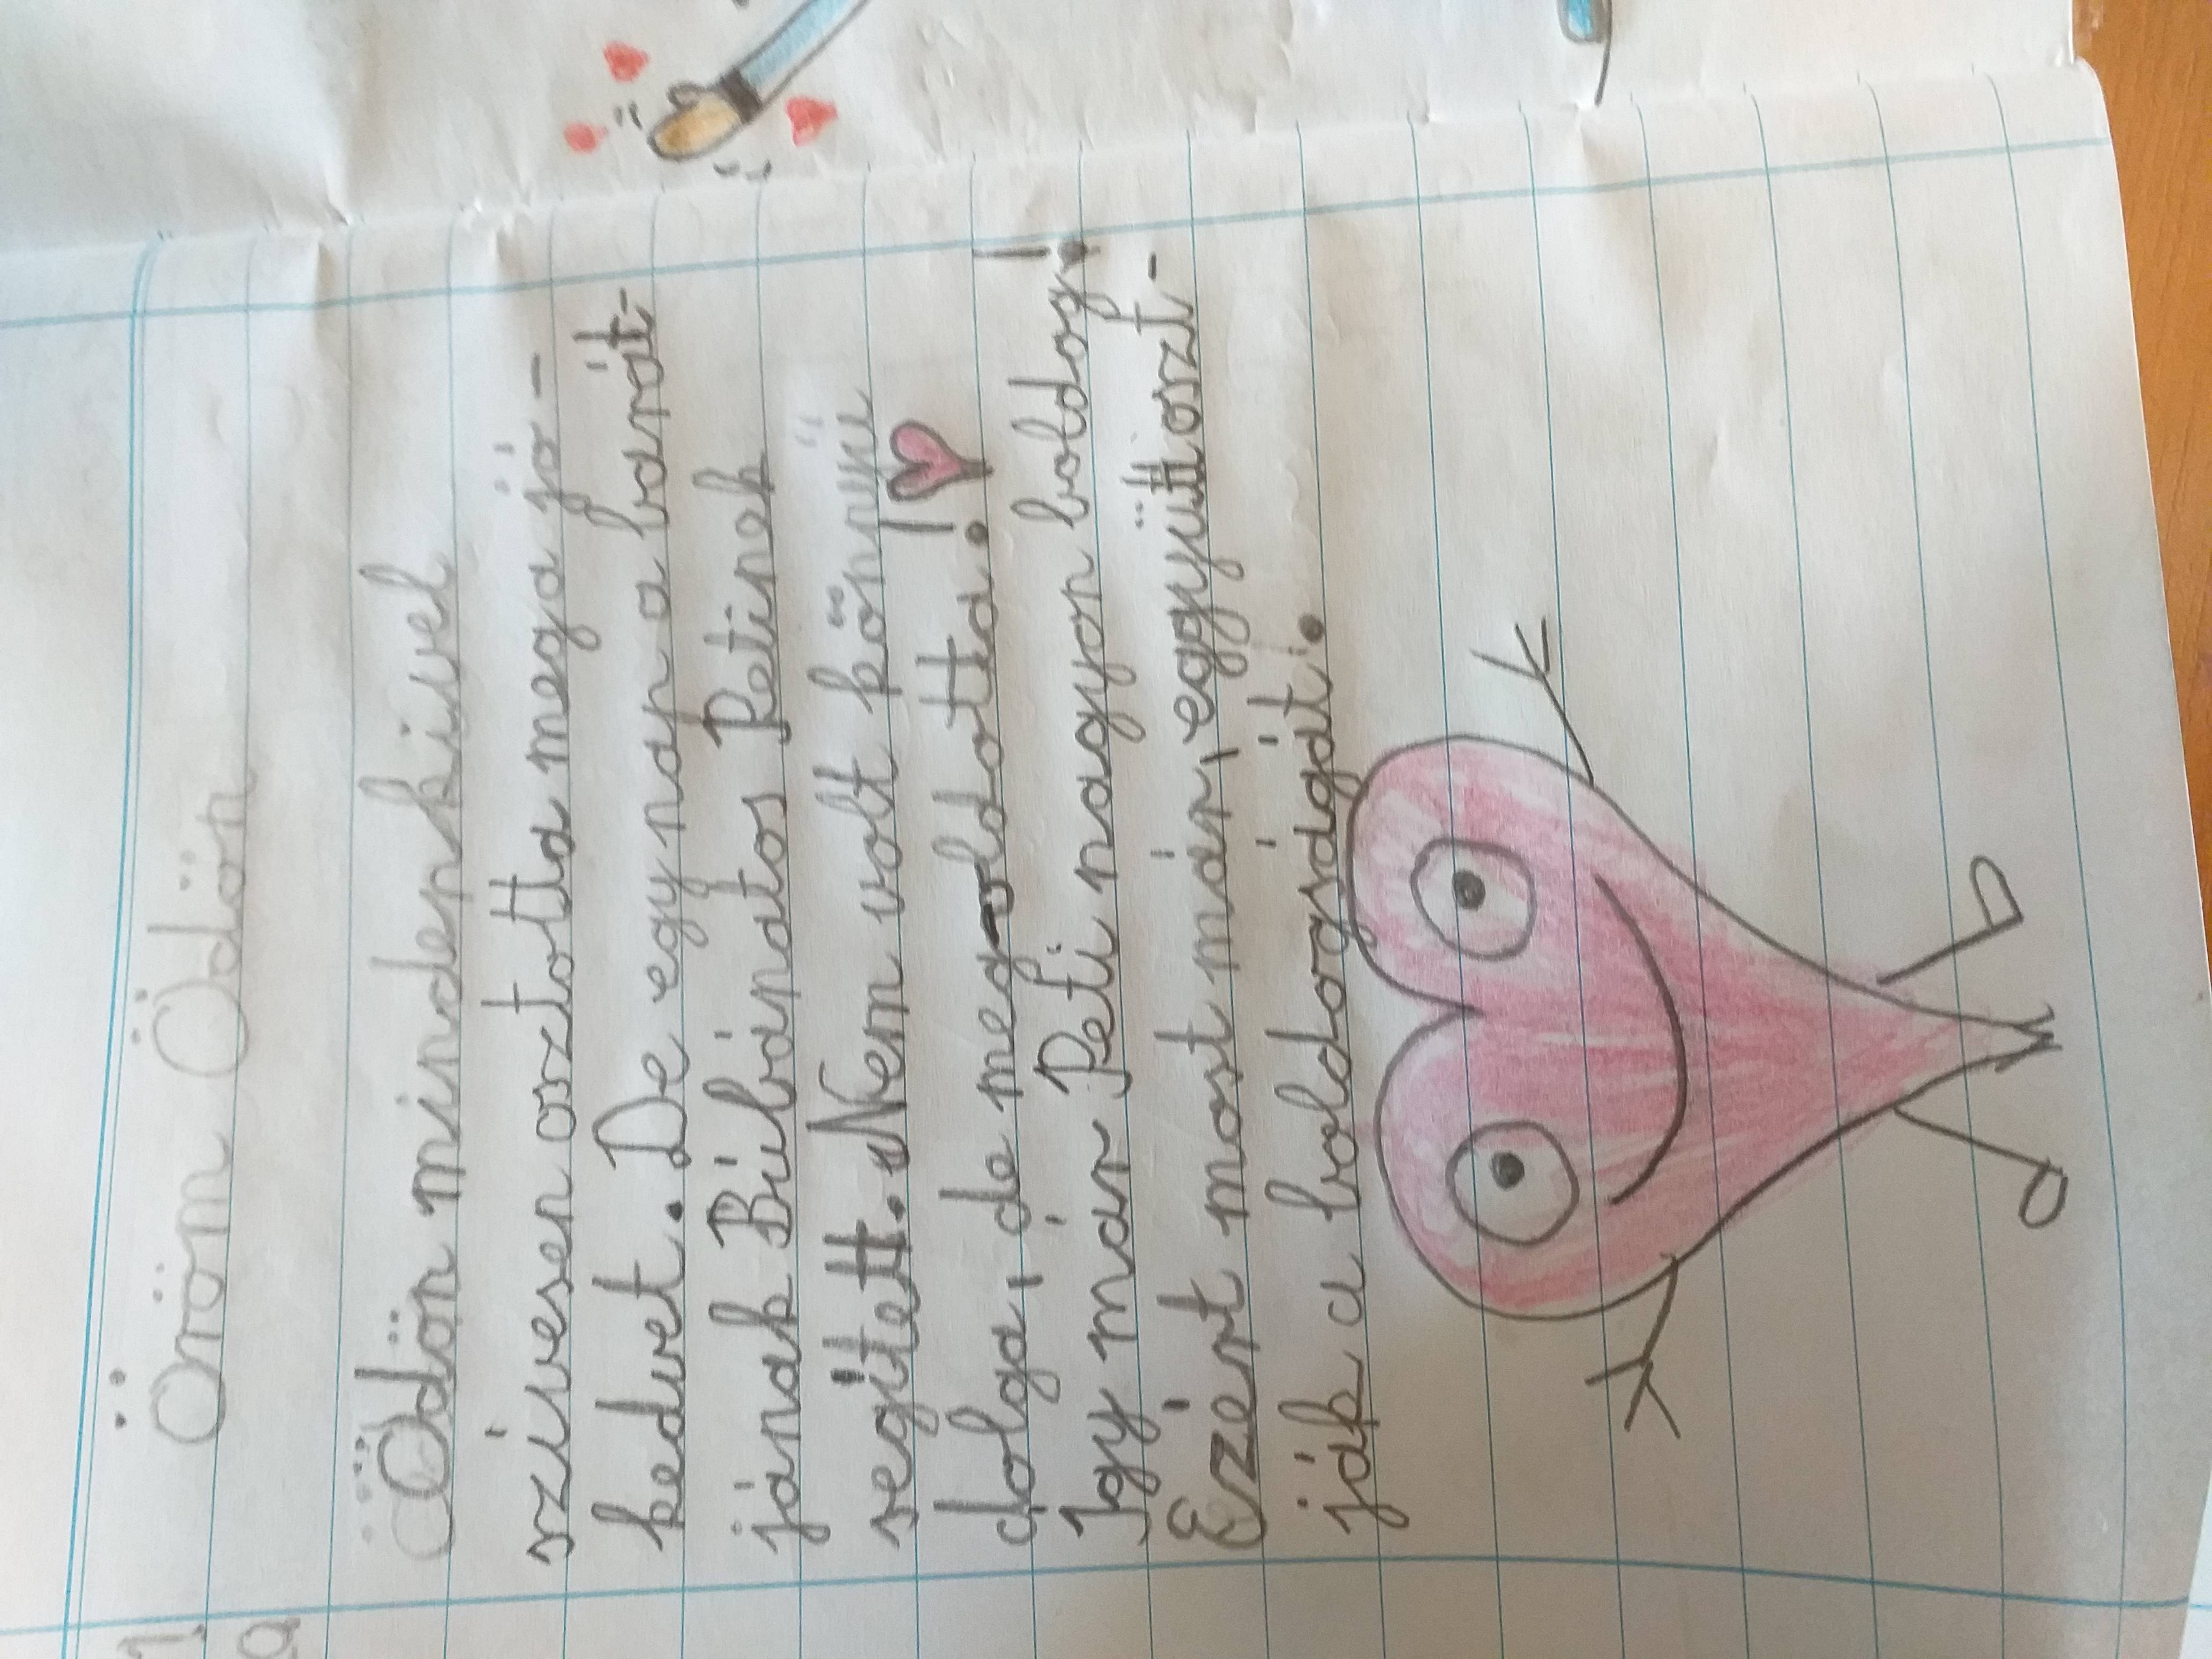 1
a
Öröm Ödön
Ödön mindenkivel
szívesen osztotta mega jó-
kedvet. De egy nap a barát-
jának Búbánatos Petinek
segített. Nem volt könnyű
dolga, de megoldotta!
Igy már Peti nagyon boldog!
Ezért most már, eggyüttoszt-
ják a boldogságát.